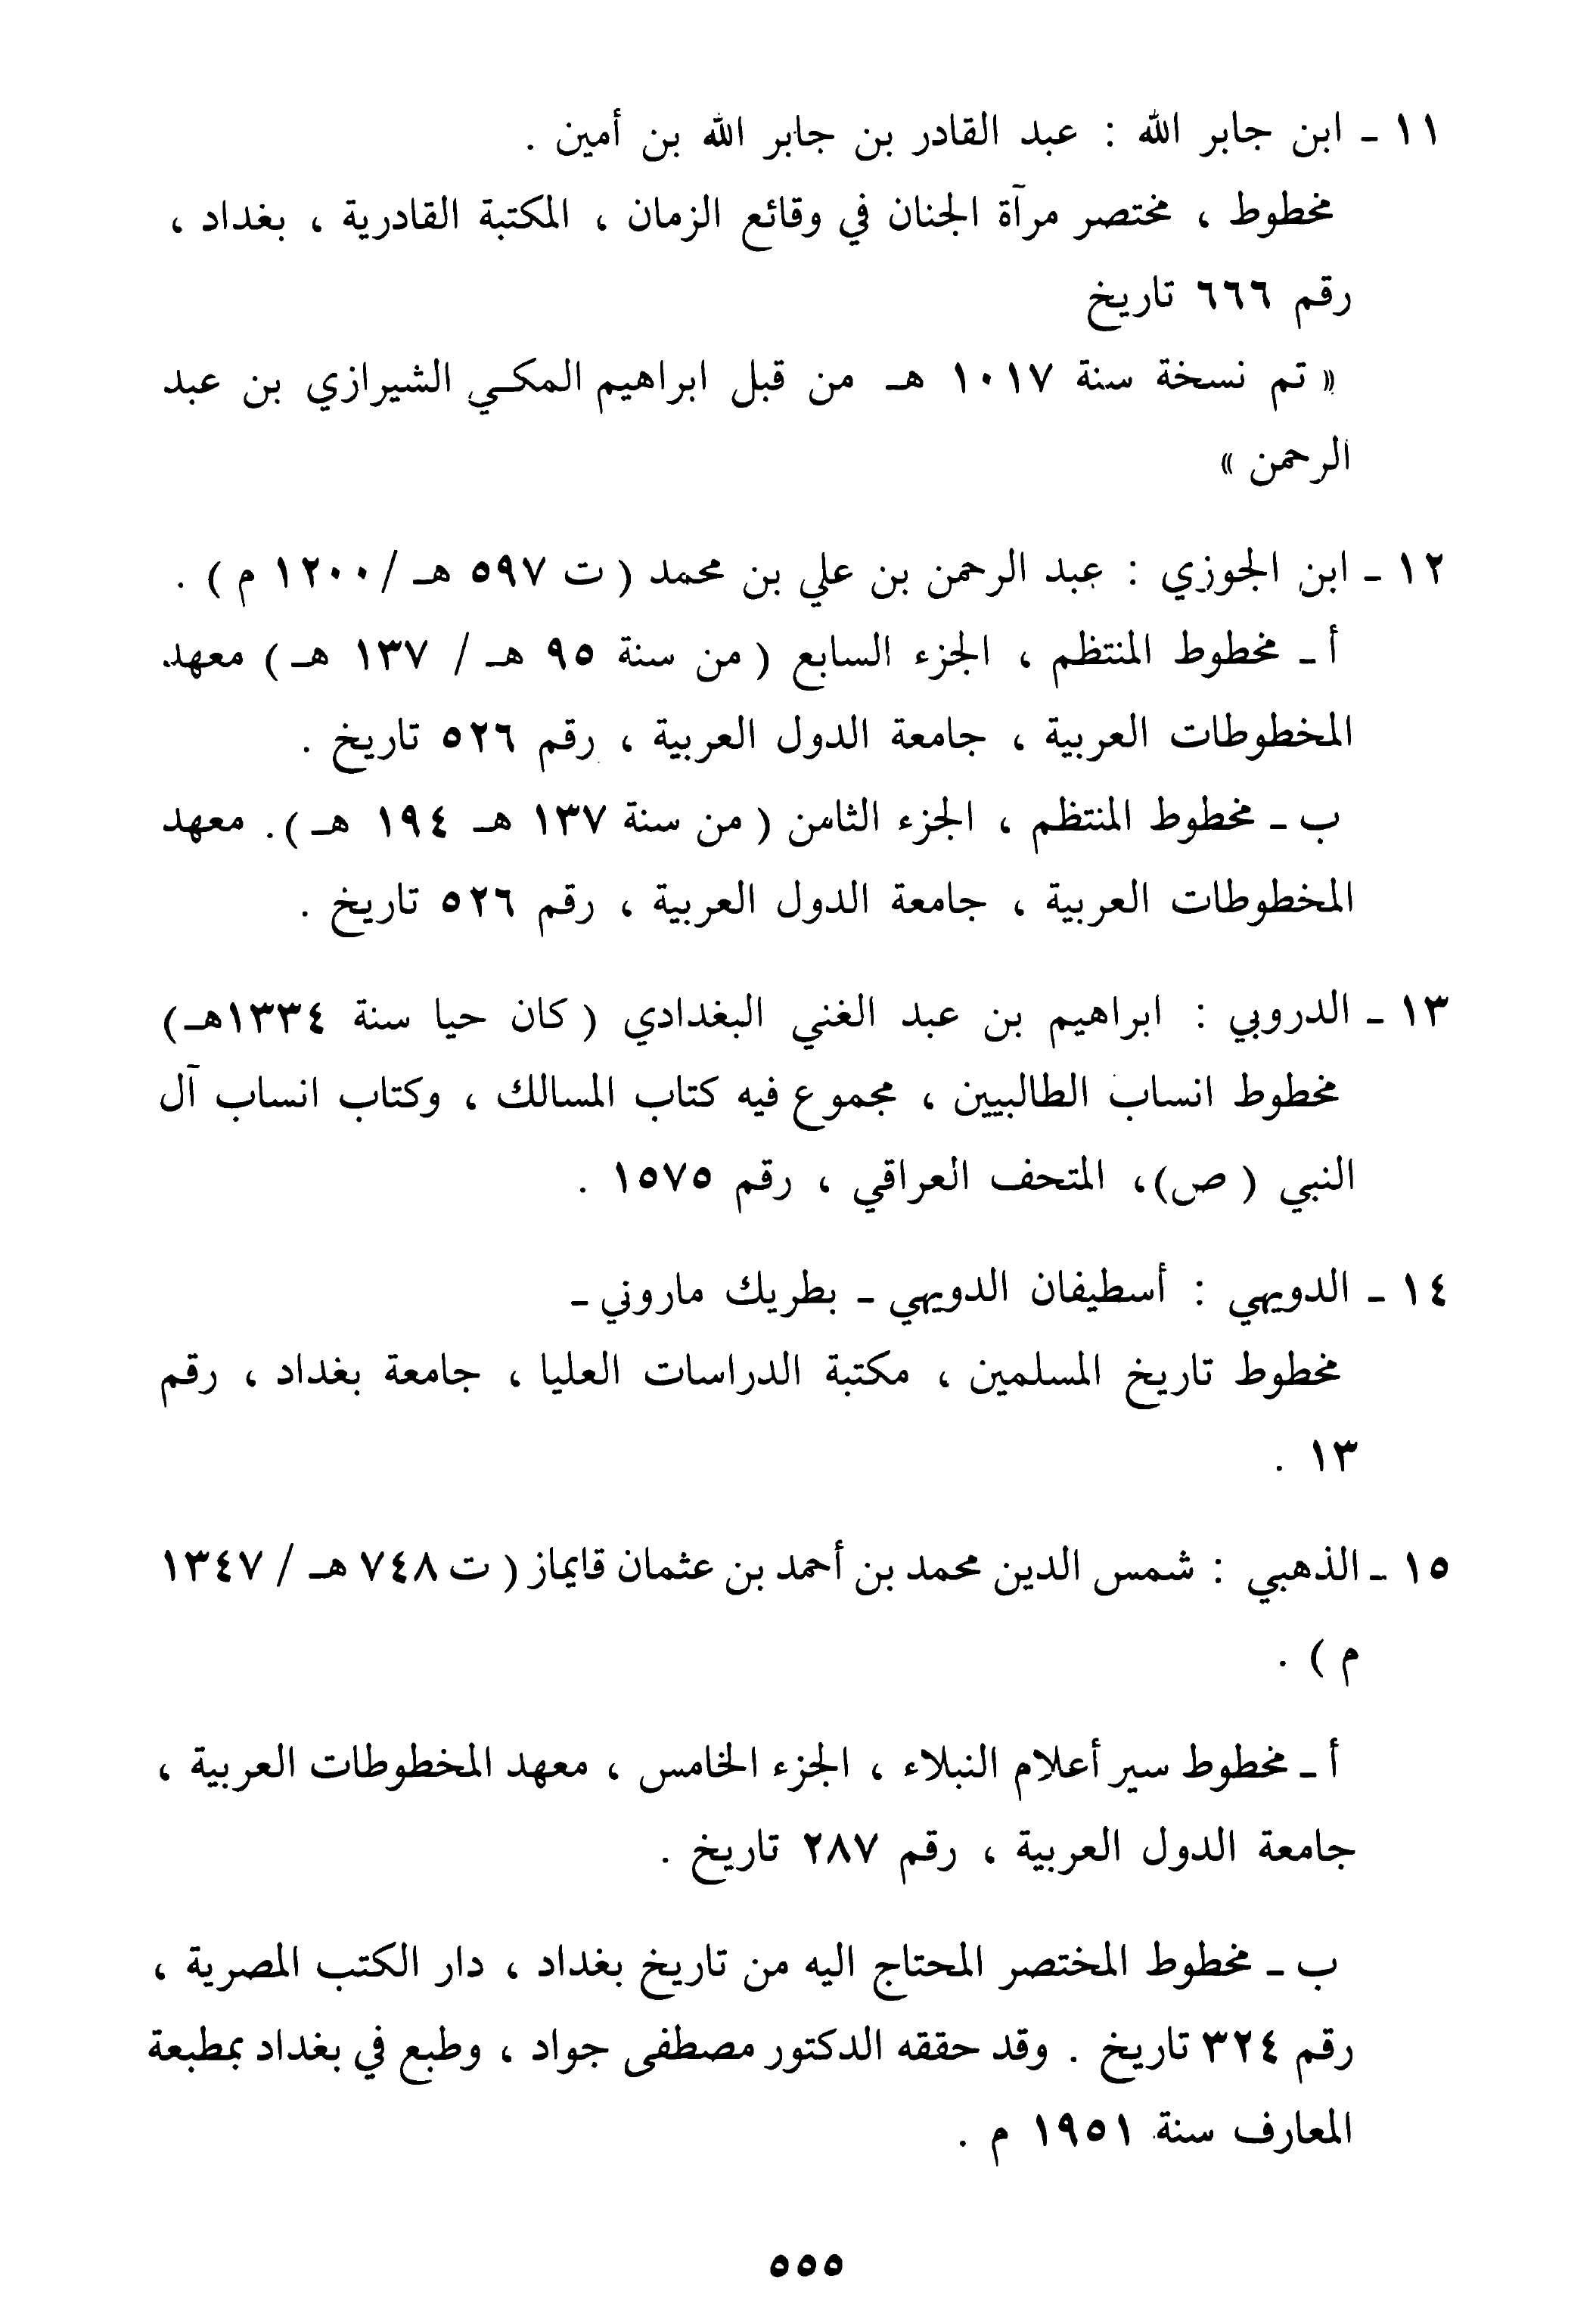 ١١ ـ ابن جابر الله : عبد القادر بن جابر الله بن أمين .
مخطوط ، مختصر مرآة الجنان في وقائع الزمان ، المكتبة القادرية ، بغداد ،
رقم ٦٦٦ تاريخ
« تم نسخة سنة ١٠١٧ هـ من قبل ابراهيم المكي الشيرازي بن عبد
الرحمن »
١٢ ـ ابن الجوزي : عبد الرحمن بن علي بن محمد ( ت ٥٩٧ هـ / ١٢٠٠ م ) .
أ ـ مخطوط المنتظم ، الجزء السابع ( من سنة ٩٥ هـ / ١٣٧ هـ ) معهد
المخطوطات العربية ، جامعة الدول العربية ، رقم ٥٢٦ تاريخ .
ب ـ مخطوط المنتظم ، الجزء الثامن ( من سنة ١٣٧ هـ ١٩٤ هـ ). معهد
المخطوطات العربية ، جامعة الدول العربية ، رقم ٥٢٦ تاريخ .
١٣ ـ الدروبي : ابراهيم بن عبد الغني البغدادي ( كان حيا سنة ١٣٣٤هـ)
مخطوط انساب الطالبيين ، مجموع فيه كتاب المسالك ، وكتاب انساب آل
النبي ( ص)، المتحف العراقي ، رقم ١٥٧٥ .
١٤ ـ الدويهي : أسطيفان الدويهي ـ بطريك ماروني ـ
مخطوط تاريخ المسلمين ، مكتبة الدراسات العليا ، جامعة بغداد ، رقم
١٣ .
١٥ ـ الذهبي : شمس الدين محمد بن أحمد بن عثمان قايماز ( ت ٧٤٨ هـ / ١٣٤٧
م ) .
أ ـ مخطوط سير أعلام النبلاء ، الجزء الخامس ، معهد المخطوطات العربية ،
جامعة الدول العربية ، رقم ٢٨٧ تاريخ .
ب ـ مخطوط المختصر المحتاج اليه من تاريخ بغداد ، دار الكتب المصرية ،
رقم ٣٢٤ تاريخ . وقد حققه الدكتور مصطفى جواد ، وطبع في بغداد بمطبعة
المعارف سنة ١٩٥١ م .
٥٥٥